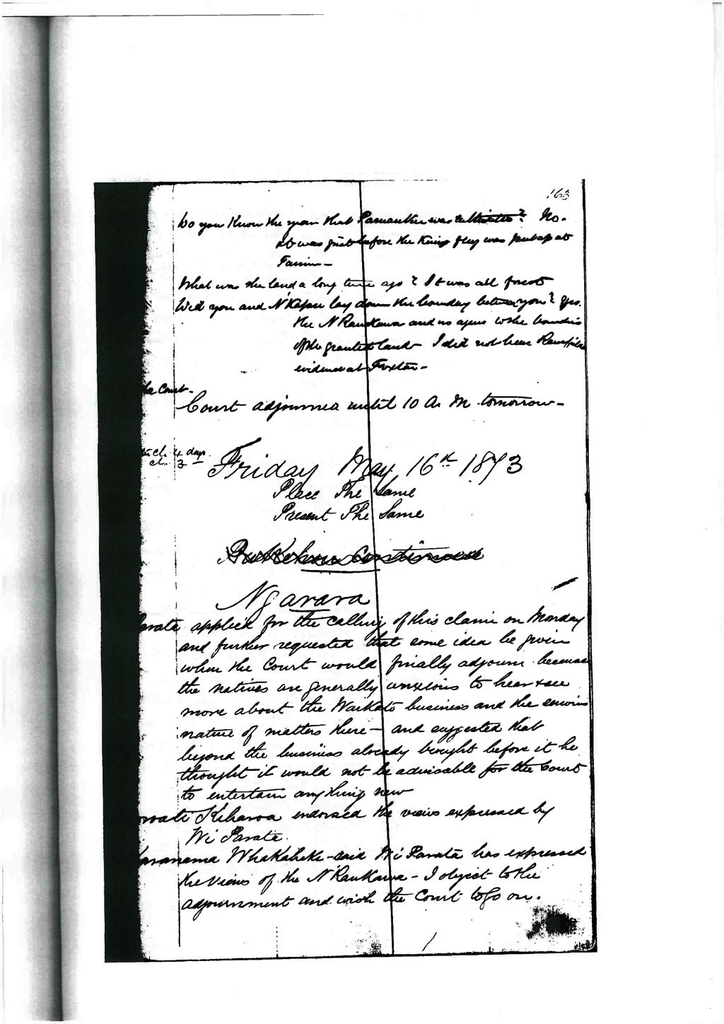 163
Do you know the year that was ? No.
It was just before the King flag was put up at
What was the land a long time ago? It was all forest
Did you and lay down the bounday between you? Yes.
the N Raukawa and us agree to the
of the granted land - I did not hear
evidence at Foxton -
Court -
Court adjourned until 10 A. M. tomorrow -
cl. 4 days
cl. 3
Friday May 16th 1873
Place The Same
Present The Same
Continued
Ngarara
applied for the calling of this claim on Monday
and further requested that some idea be given
when the Court would finally adjourn because
the natives are generally anxious to hear & see
more about the Waikato business and the serious
nature of matters there - and suggested that
beyond the business already brought before it he
thought it would not be advisable for the Court
to entertain anything new
endorsed the views expressed by
Wi Parata.
Whakaheke - said Wi Parata has expressed
the views of the N Raukawa - I object to the
adjournment and wish the Court to go on.